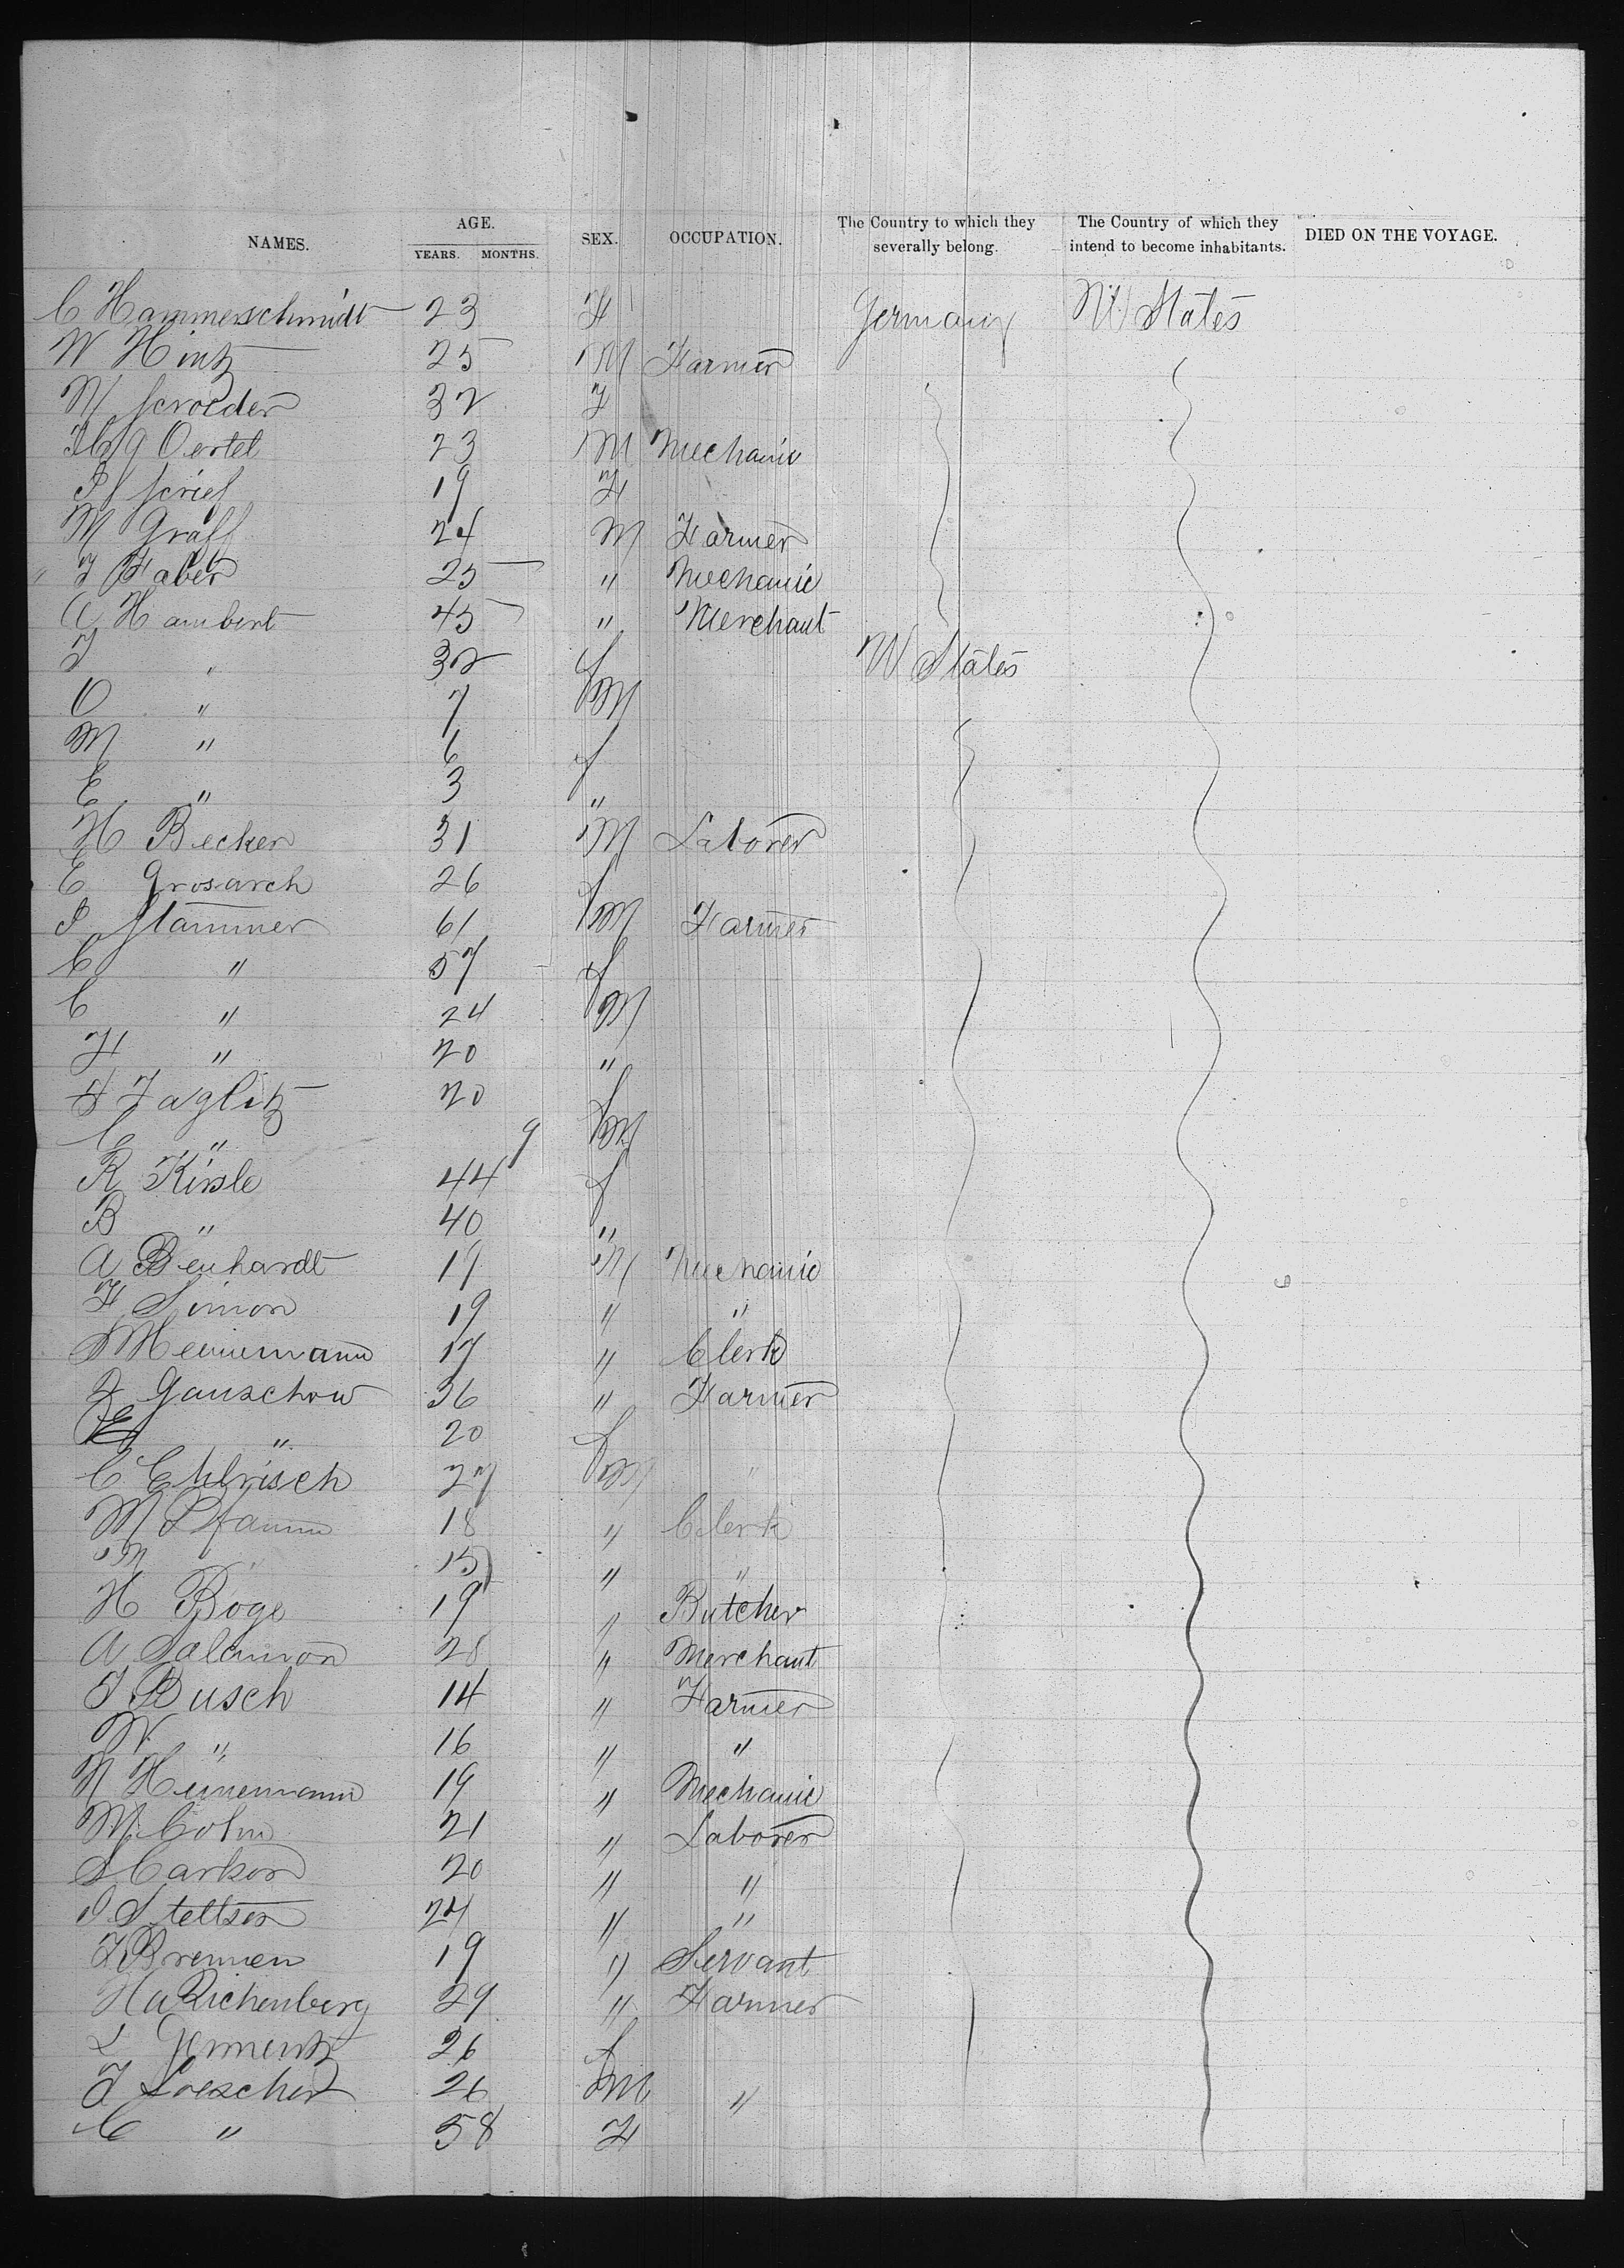 NAMES. AGE. YEARS. MONTHS. SEX. OCCUPATION. The Country to which they severally belong. The Country of which they intend to become inhabitants. DIED ON THE VOYAGE.
C Hammerschmidt 23 F Germany U States
W Hintz 25 M Farmer
M Scroeder 32 F
23 M Mechanic
19 F
M Graff 24 M Farmer
F Faber 25 " Mechanic
A Hambert 45 " Merchant
" 32 f U States
O " 7 M
M " 6 f
E " 3 "
H Becker 31 M Laborer
E Grosarch 26 f
P Stammer 61 M Farmer
C " 57 f
C " 24 M
F " 20 "
20 f
C " 9 M
R Kirsle 44 f
B " 40 "
A Benhardt 19 M Mechanic
F Simon 19 " "
S Heinemann 17 " Clerk
Ganschow 36 " Farmer
" 20 f
C Ehlrisch 27 M "
M Pfaunn 18 " Clerk
M " 15 " "
H Boge 19 " Butcher
A Salamon 28 " Merchant
J Busch 14 " Farmer
W " 16 " "
N Heinemann 19 " Mechanic
M Cohn 21 " Laborer
S Carlson 20 " "
24 " "
Brennen 19 " Servant
29 " Farmer
L 26 f
J Loescher 26 M "
C " 58 F